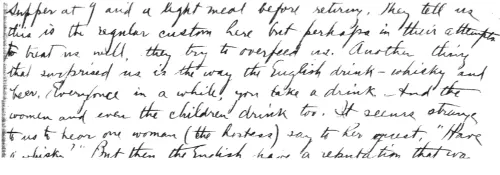 supper at 9 and a light meal before retiring. They tell us
this is the regular custom here but perhaps in their attempts
to treat us well, they try to overfeed us. Another thing
that surprised us is the way the English drink - whisky and
beer. Everyonce in a while, you take a drink - And the
women and even the children drink too. It seems strange
to us to hear one woman (the hostess) say to her guest, "Have
a whisky?" But then the English have a reputation that wa